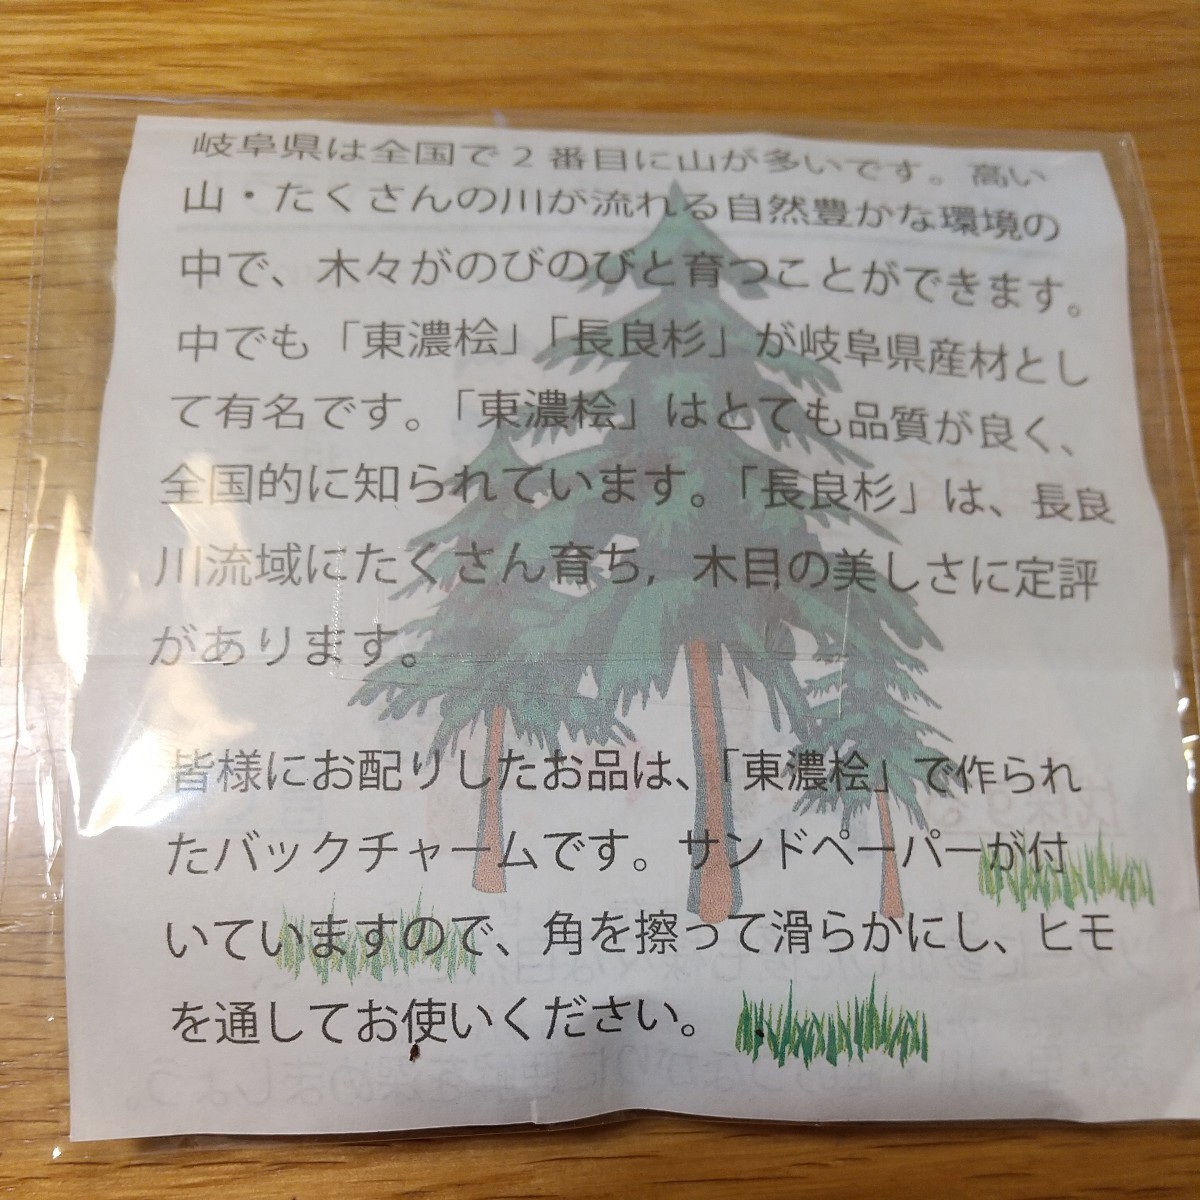 岐阜県は全国で２番目に山が多いです。高い
山・たくさんの川が流れる自然豊かな環境の
中で、木々がのびのびと育つことができます。
中でも「東濃桧」「長良杉」が岐阜県産材とし
て有名です。「東濃桧」はとても品質が良く、
全国的に知られています。「長良杉」は、長良
川流域にたくさん育ち，木目の美しさに定評
があります。
皆様にお配りしたお品は、「東濃桧」で作られ
たバックチャームです。サンドペーパーが付
いていますので、角を擦って滑らかにし、ヒモ
を通してお使いください。